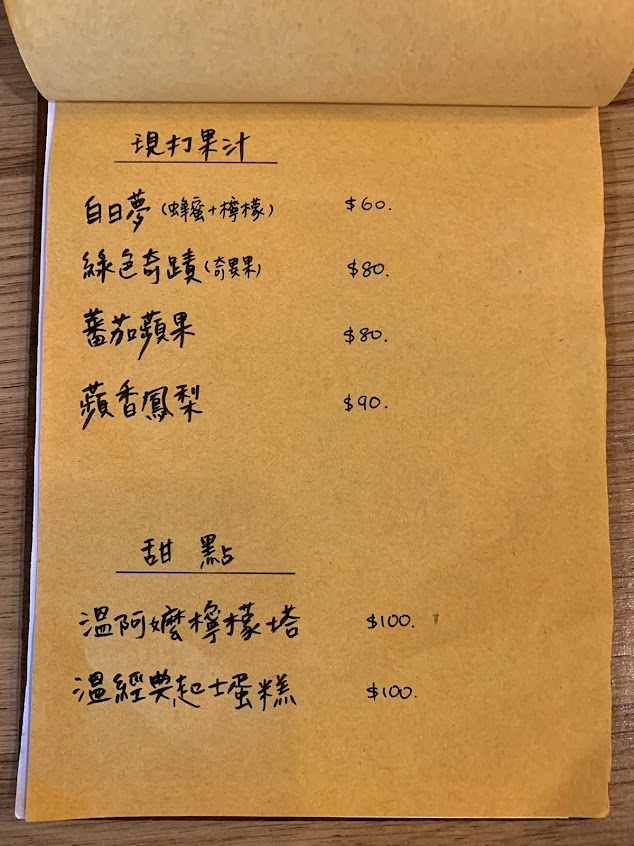 現打果汁
白日夢(蜂蜜+檸檬) $60.
綠色奇蹟(奇異果) $80.
蕃茄蘋果 $80.
蘋香鳳梨 $90.
甜點
溫阿嬤檸檬塔 $100.
溫經典起士蛋糕 $100.